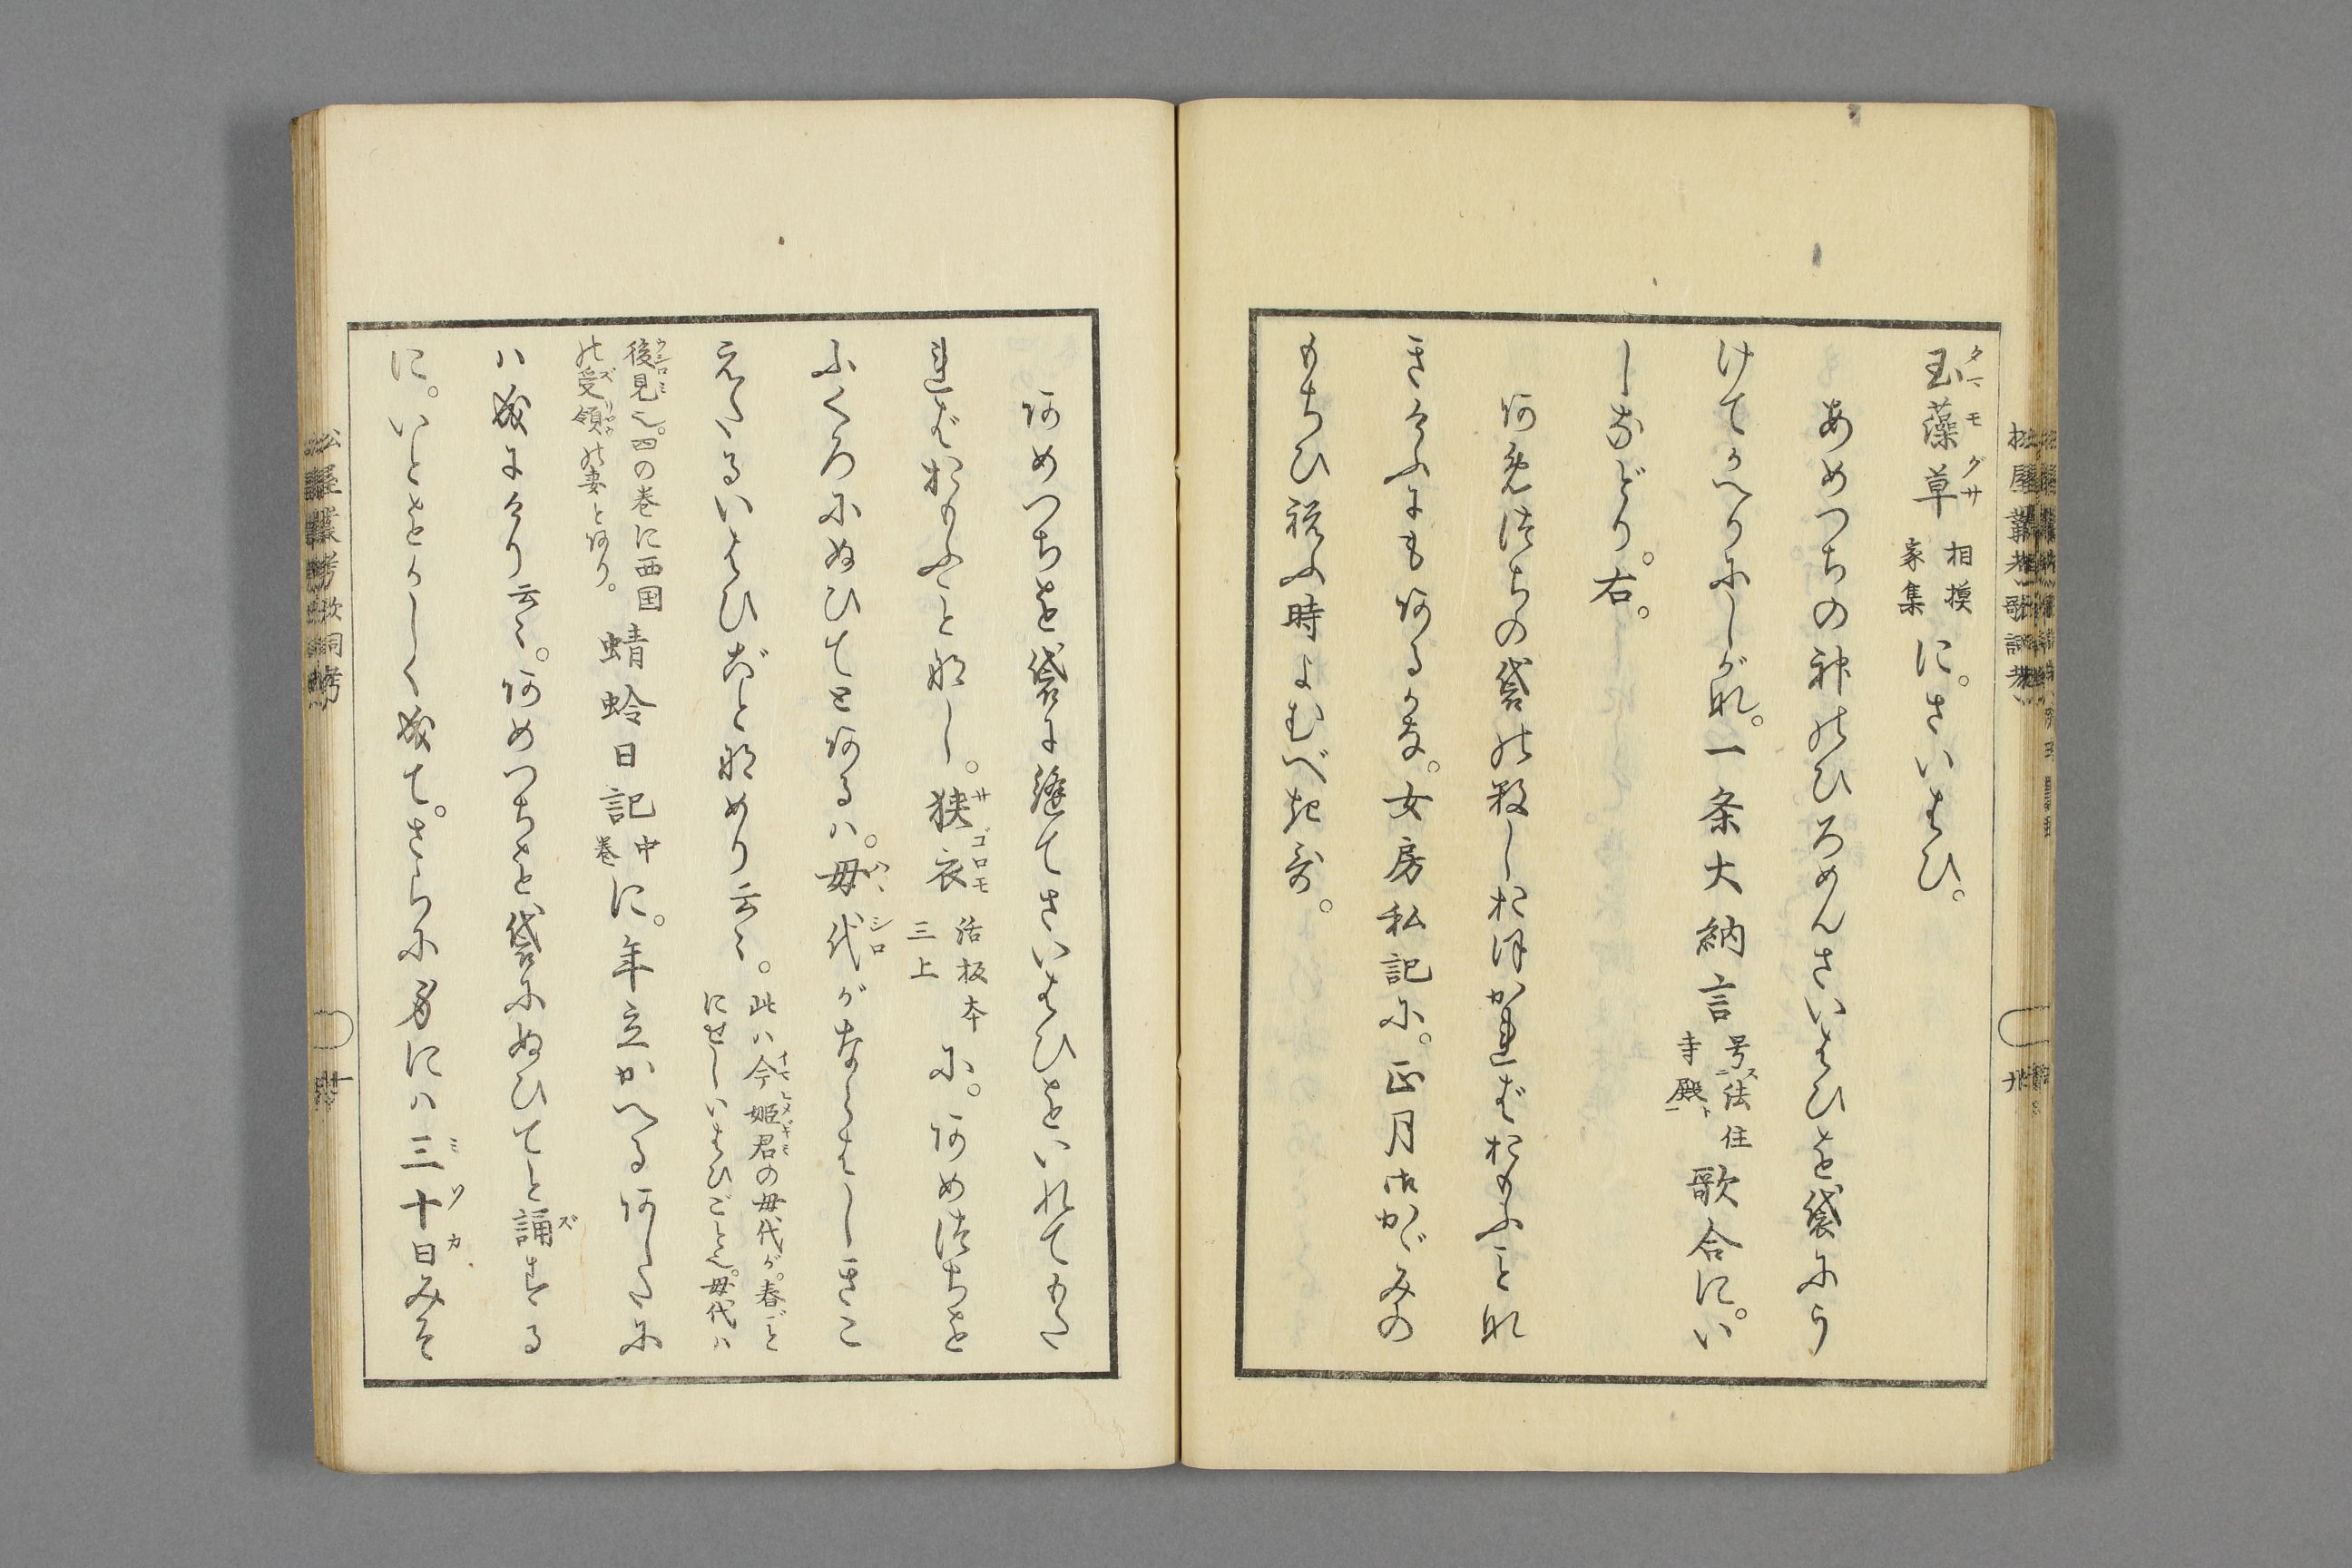 玉藻草相模家集に。さいはひ。
あめつちの神のひろめんさいはひを袋にう
けてかへりにしがな。一条大納言号法住寺殿歌合に。い
しなどり。右。
あめつちの袋の数しおほかればおもふことな
きけふにもあるかな。女房私記に。正月御かゞみの
もちひ祝ふ時よむべき哥。
あめつちを袋に縫てさいはひをいれてもた
ればおもふこと那し。狭衣活板本三上に。あめつちを
ふくろにぬひてとあるハ。母代がならはしきこ
えたるいはひごと那めり云々。此ハ今姫君の母代が。春ごとにせしいはひごと也。母代ハ
後見也。四の巻に西国の受領の妻とあり。蜻蛉日記中巻に。年立かへるあしたに
ハ成にけり云々。あめつちを袋にぬひてと誦ずる
に。いとをかしく成て。さらに身にハ三十日みそ